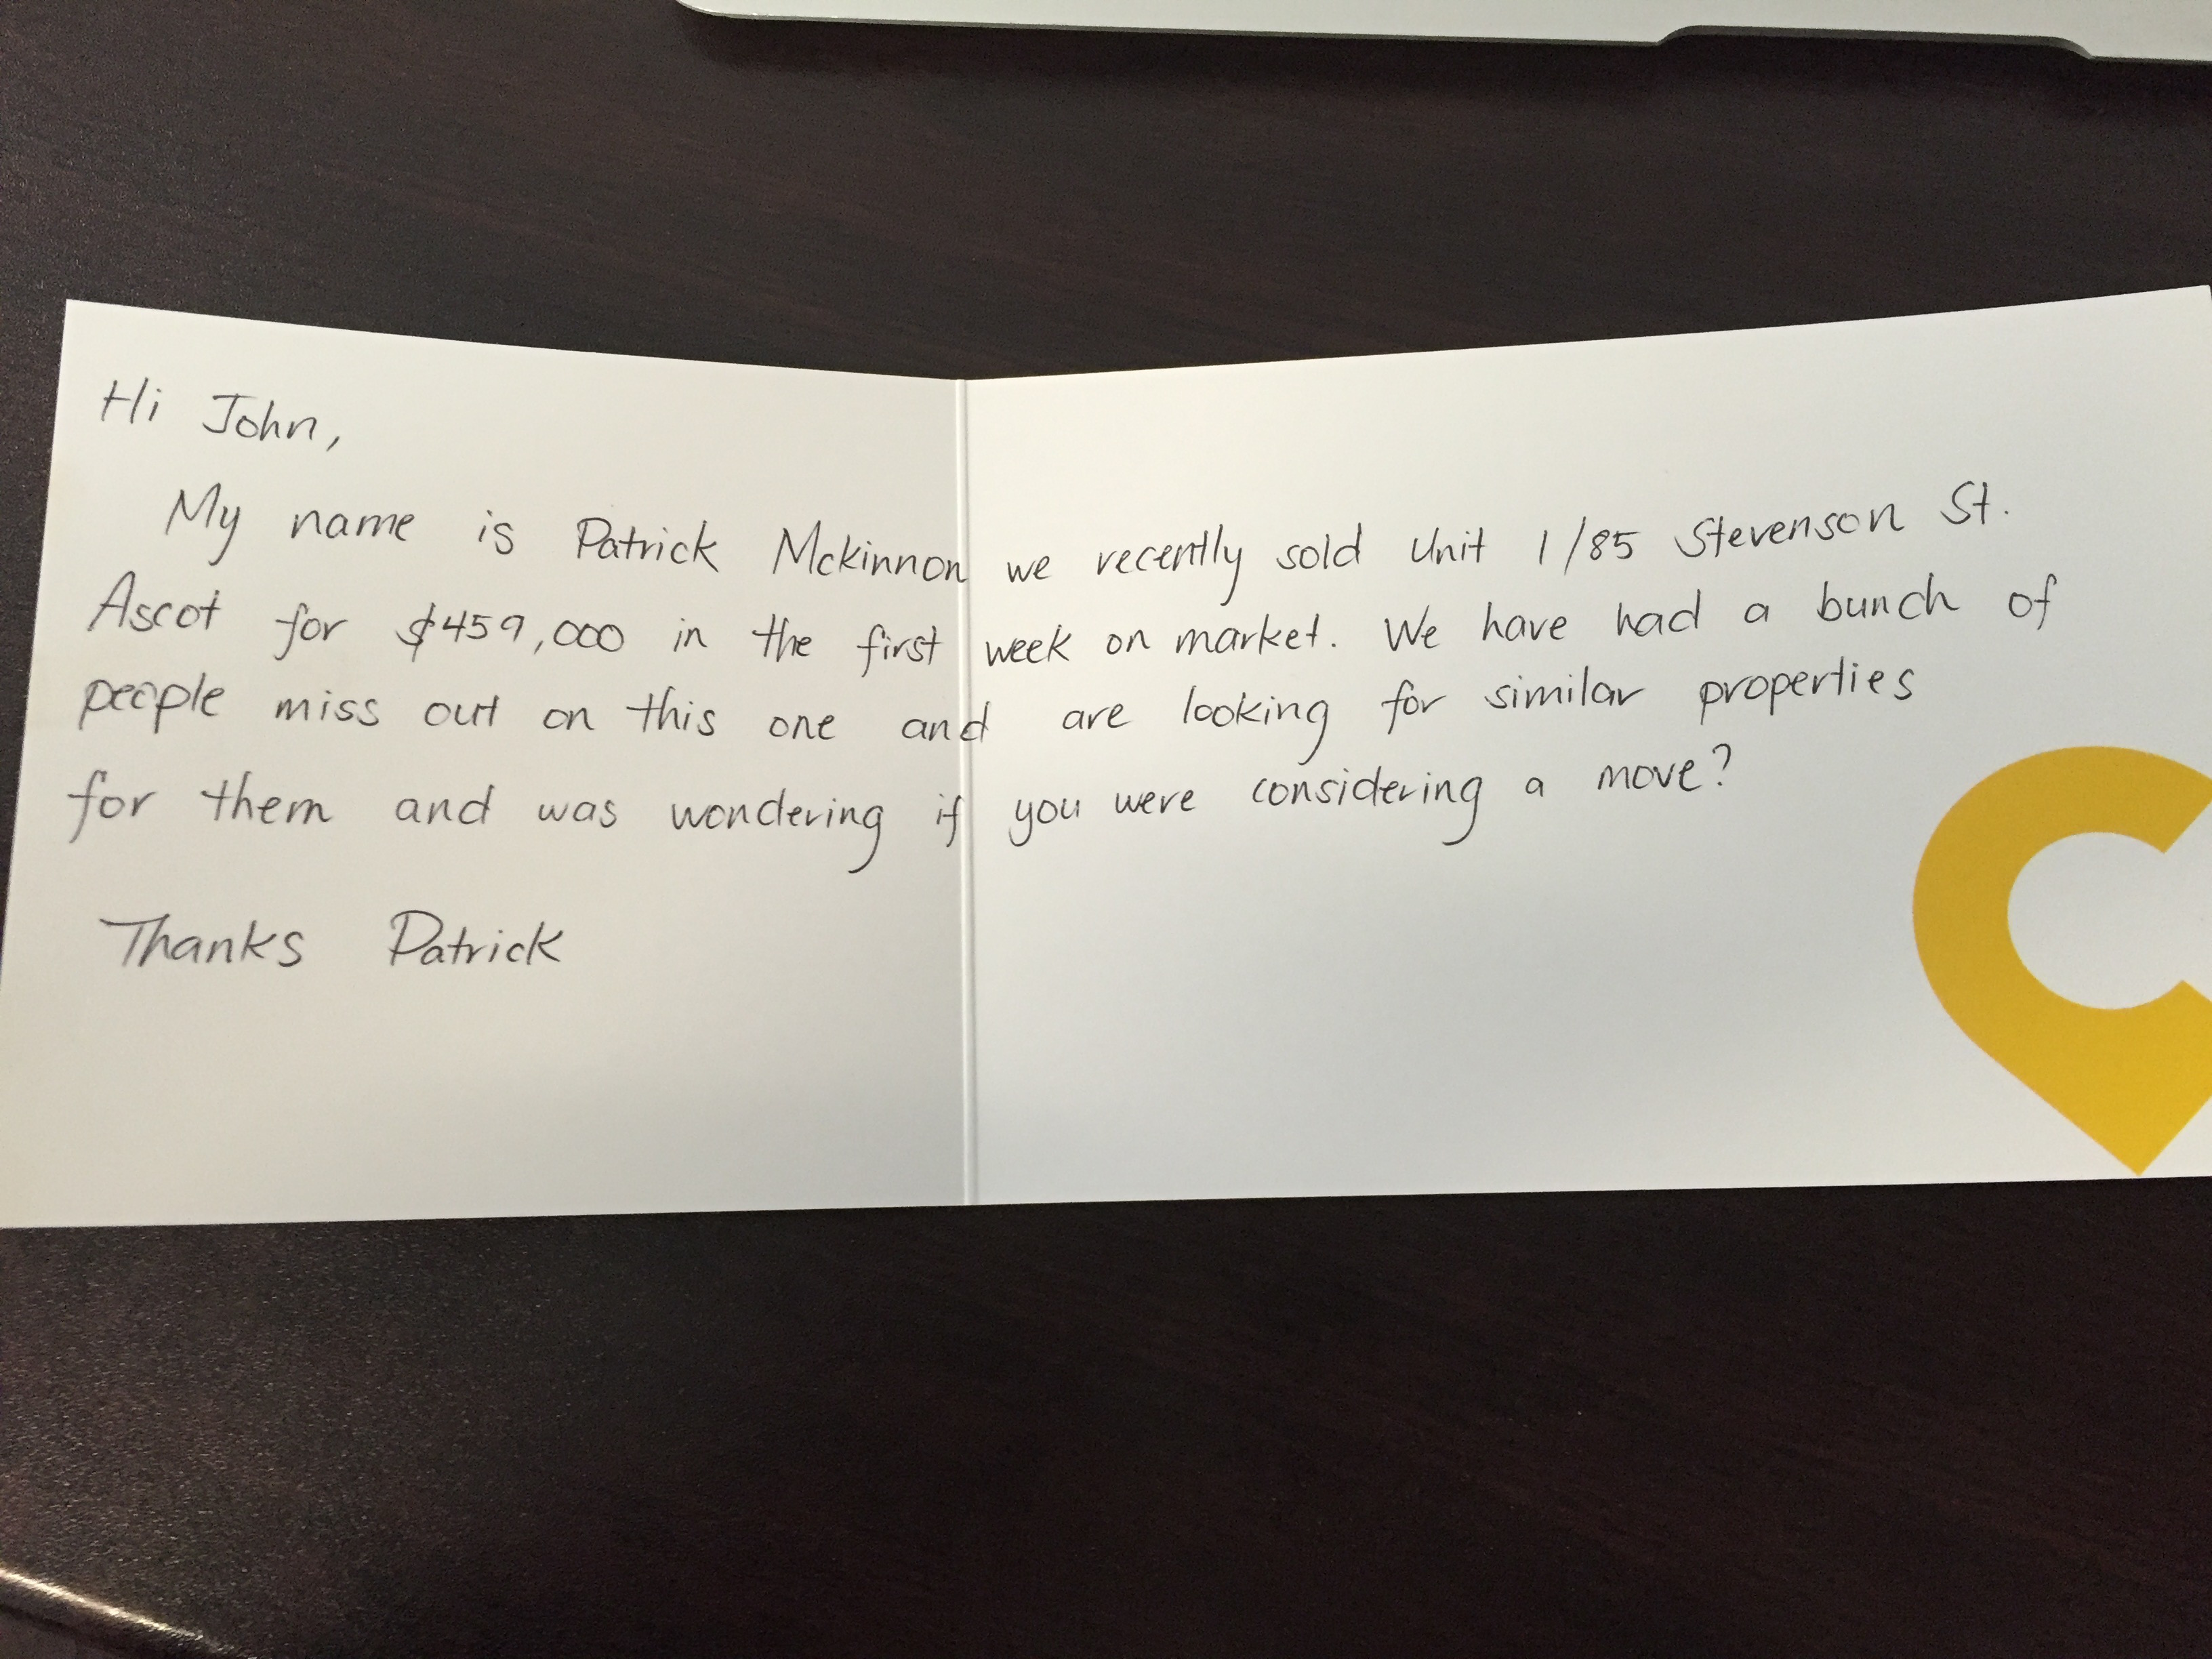 Hi John,
My name is Patrick Mckinnon we recently sold Unit 1/85 Stevenson St.
Ascot for $459,000 in the first week on market. We have had a bunch of
people miss out on this one and are looking for similar properties
for them and was wondering if you were considering a move?
Thanks Patrick